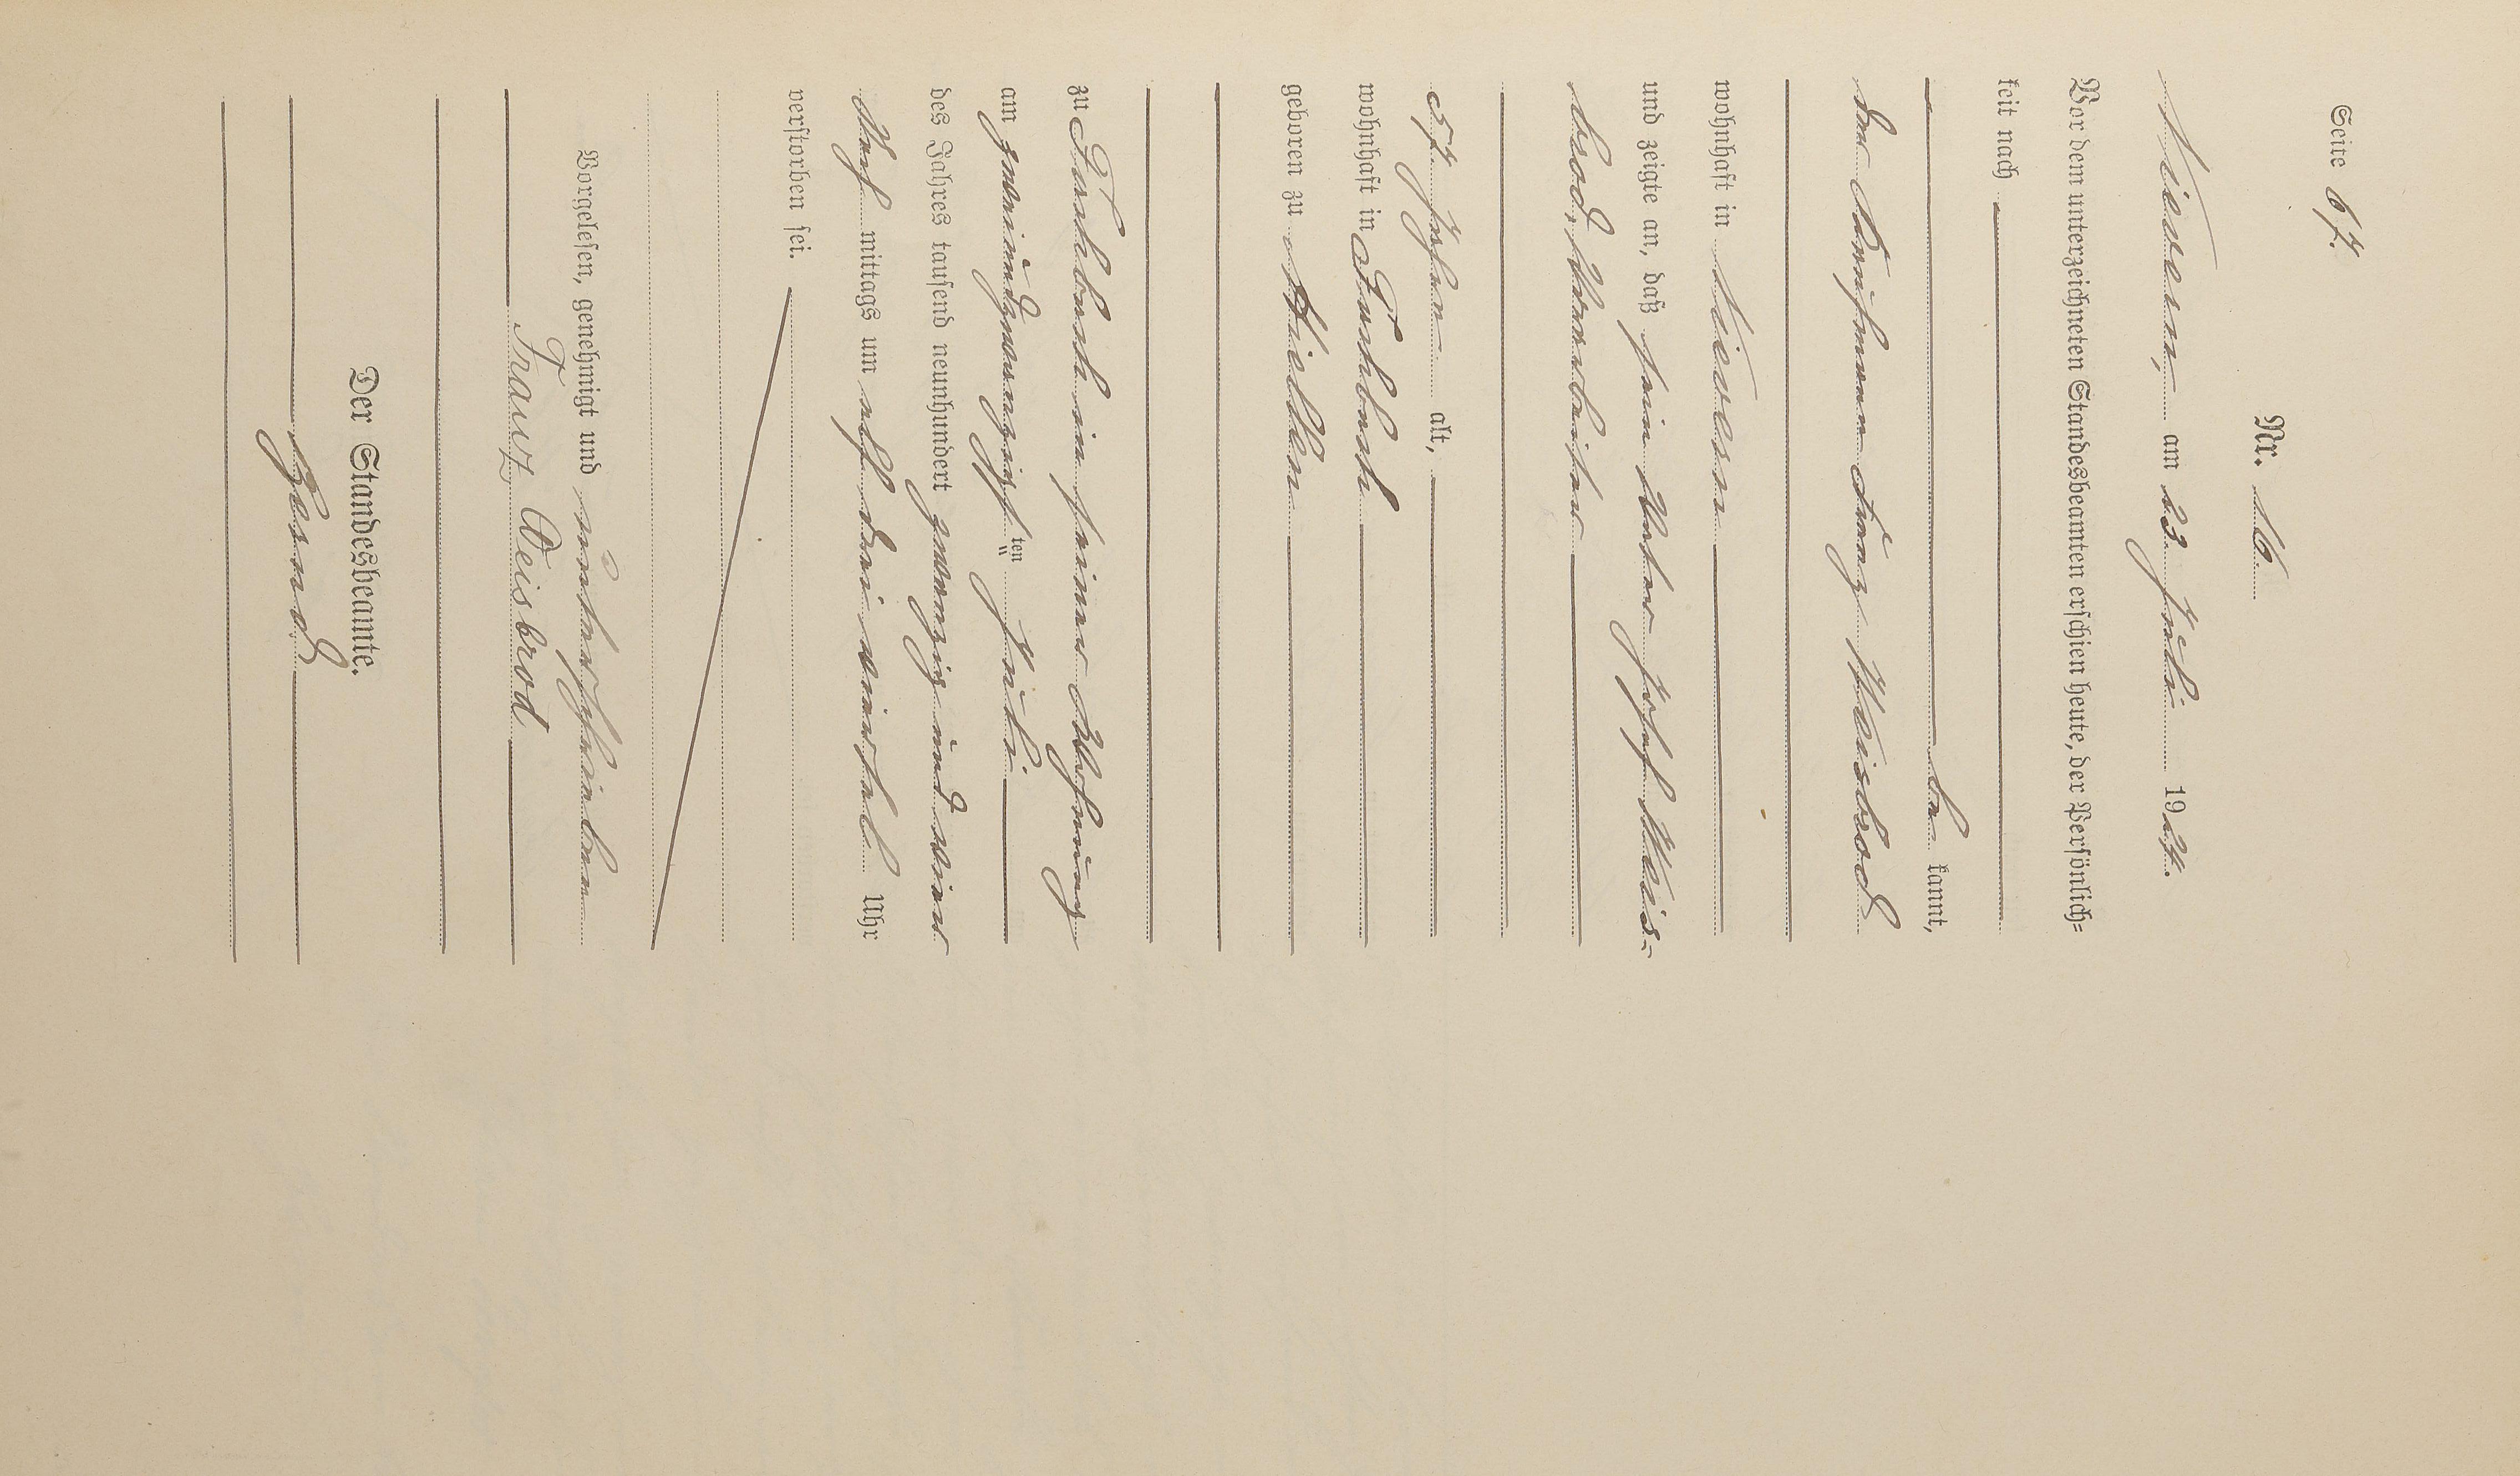 Seite 67.
Nr. 16.
Nievern, am 23. Juli 1924.
Vor dem unterzeichneten Standesbeamten erschien heute, der Persönlich=
keit nach
be kannt,
der Kaufmann Franz Weisbrod
wohnhaft in Nievern
und zeigte an, daß sein Vater Josef Weis=
brod, Vorarbeiter
57 Jahre alt,
wohnhaft in Fachbach
geboren zu Miellen
zu Fachbach in seiner Wohnung
am zweiundzwanzigsten ten Juli
des Jahres tausend neunhundert zwanzig und vier
Nach mittags um elf drei viertel Uhr
verstorben sei.
Vorgelesen, genehmigt und unterschrieben
Franz Weisbrod
Der Standesbeamte.